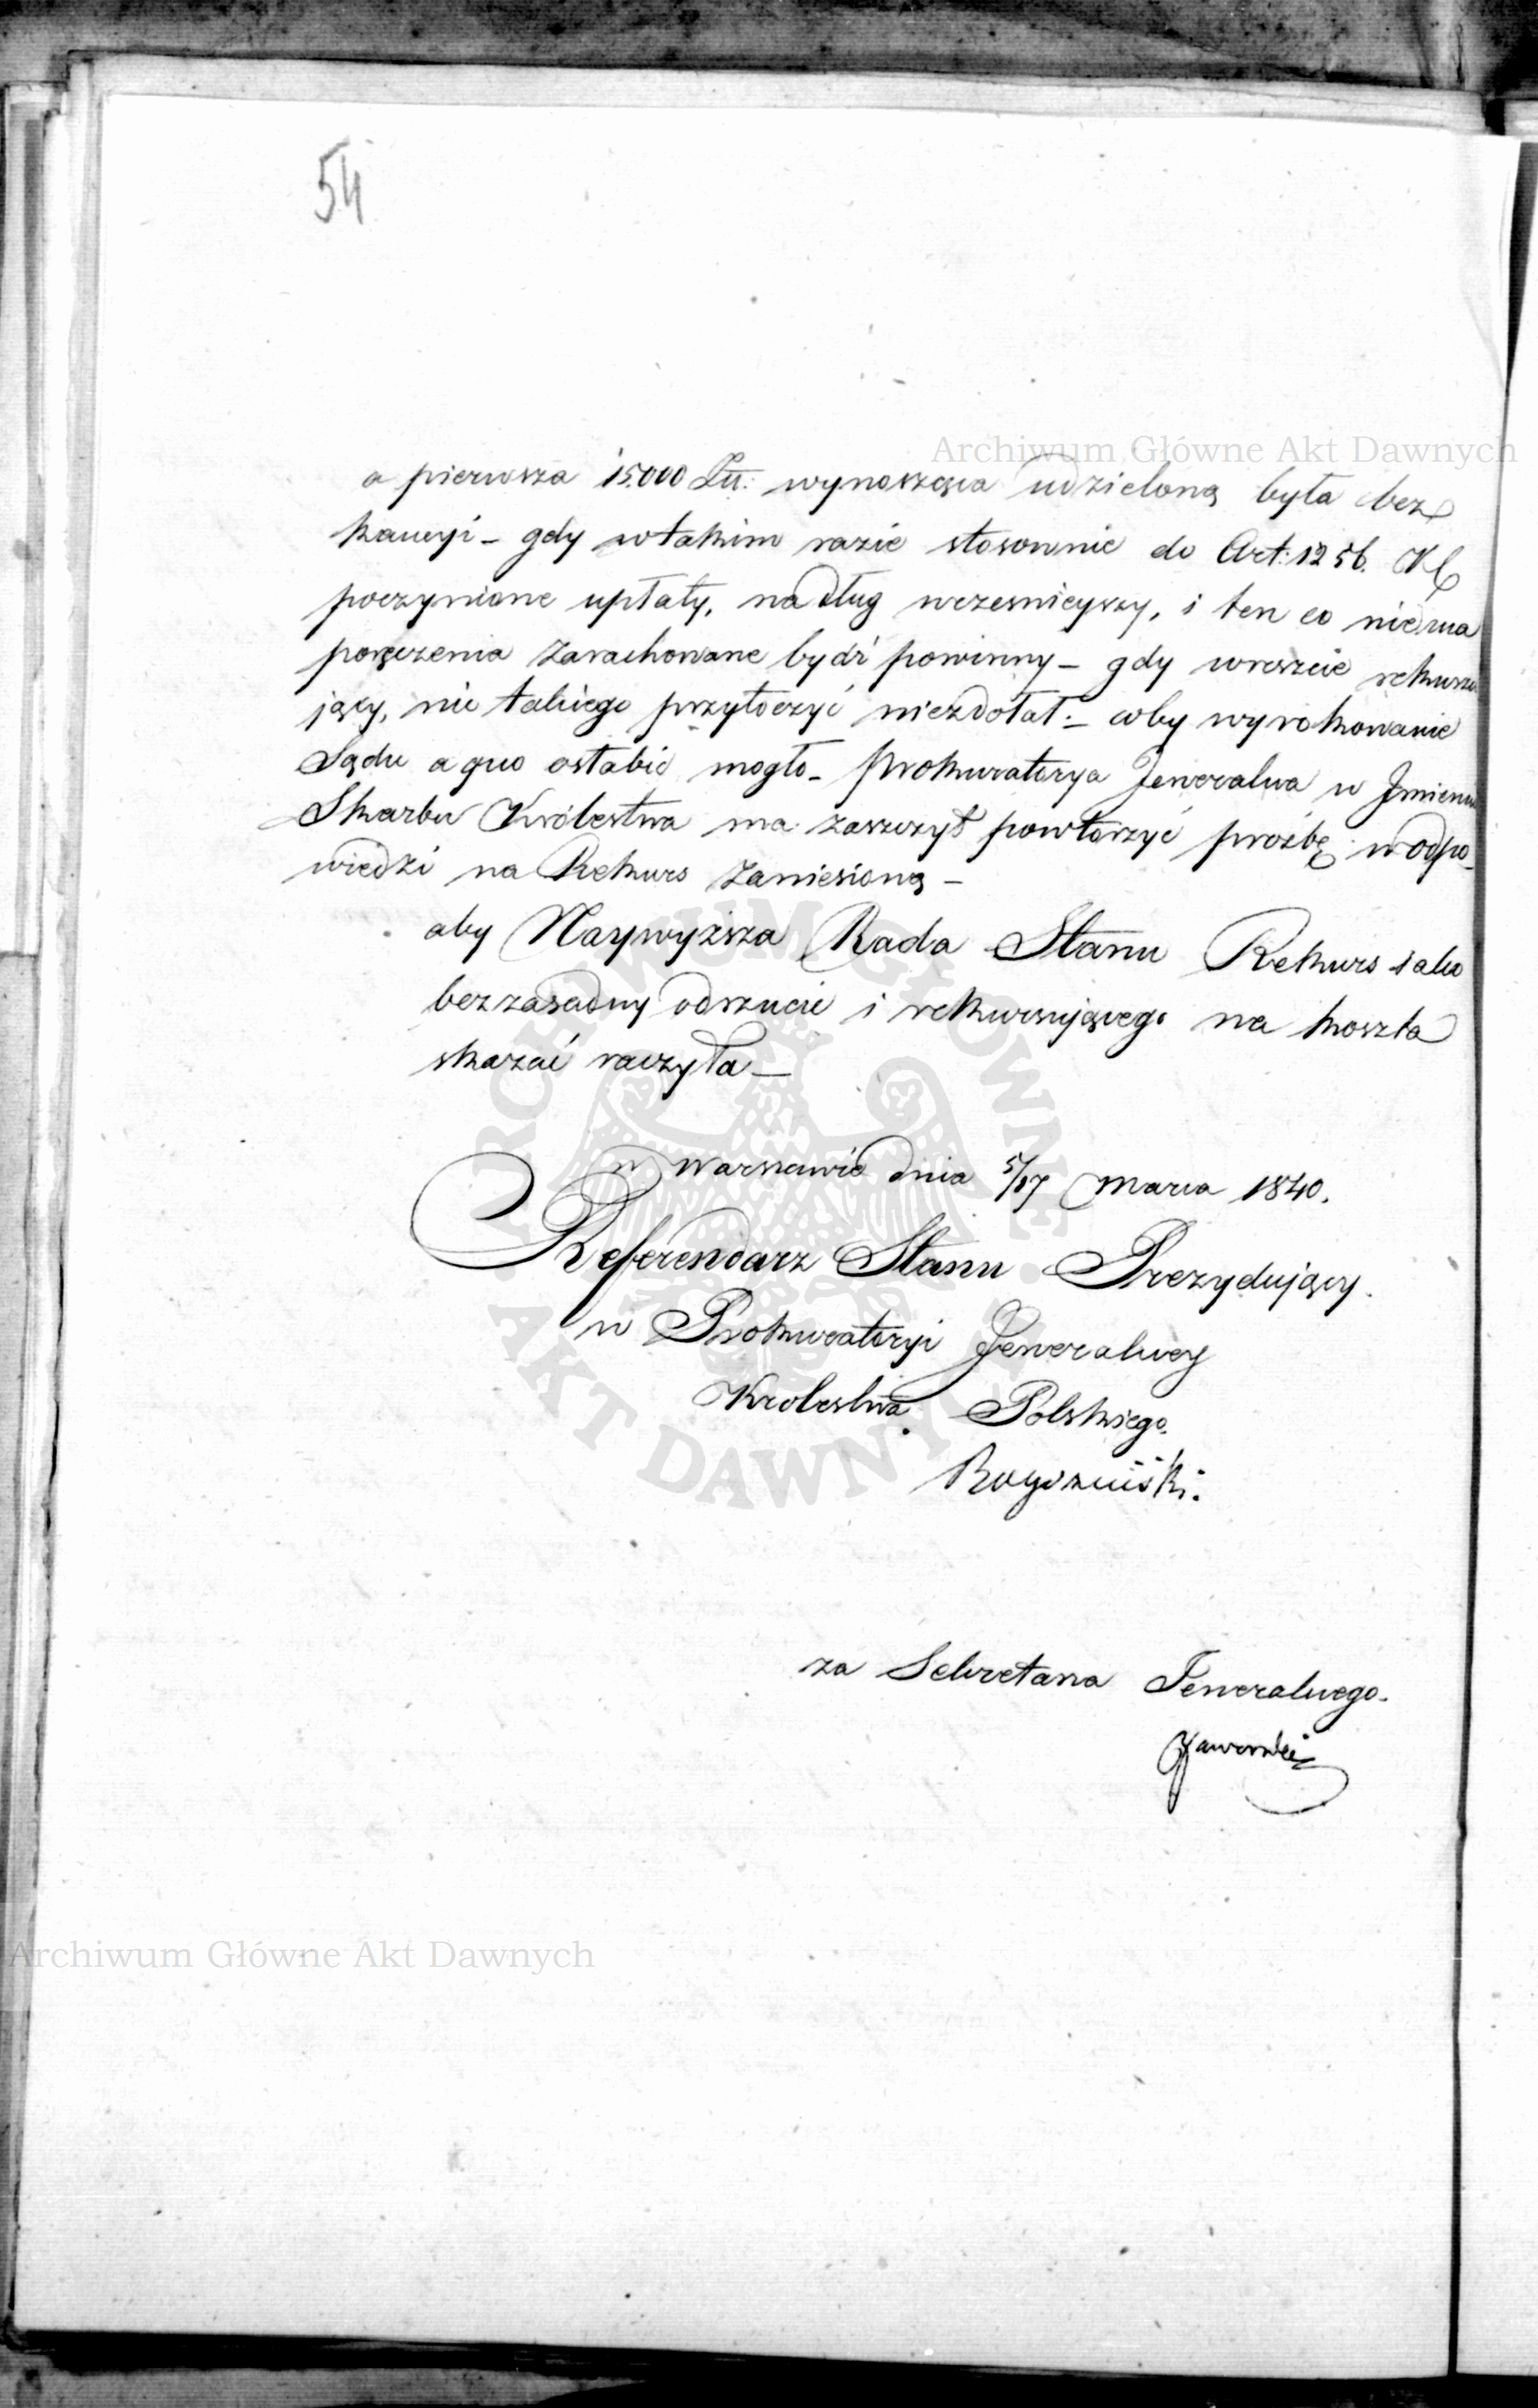 54
Archiwum Główne Akt Dawnych
a pierwsza 15.000 wynosząca udzieloną była bez
kaucyi – gdy wtakim razie stosownie do Art: 1256. KC
poczynione upłaty, nadług wcześnieyszy, i ten co niema
poręczenia zarachowane bydź powinny – gdy wreszcie rekursu
jący, nic takiego przytoczyć niezdołał – coby wyrokowanie
Sądu a quo osłabić mogło – Prokuratorya Jeneralna w Jmieniu
Skarbu Królestwa ma zaszczyt powtórzyć prośbę w odpo-
wiedzi na Rekurs zaniesioną –
aby Naywyższa Rada Stanu Rekurs jako
bezzasadny odrzucić i rekursującego na koszta
skazać raczyła –
w Warszawie dnia 5/17 Marca 1840.
Referendarz Stanu Prezydujący.
w Prokuratoryi Jeneralney
Krolestwa Polskiego.
Rogoziński.
za Sekretarza Jeneralnego.
Jaworski
Archiwum Główne Akt Dawnych
ARCHIWUM GŁÓWNE AKT DAWNYCH